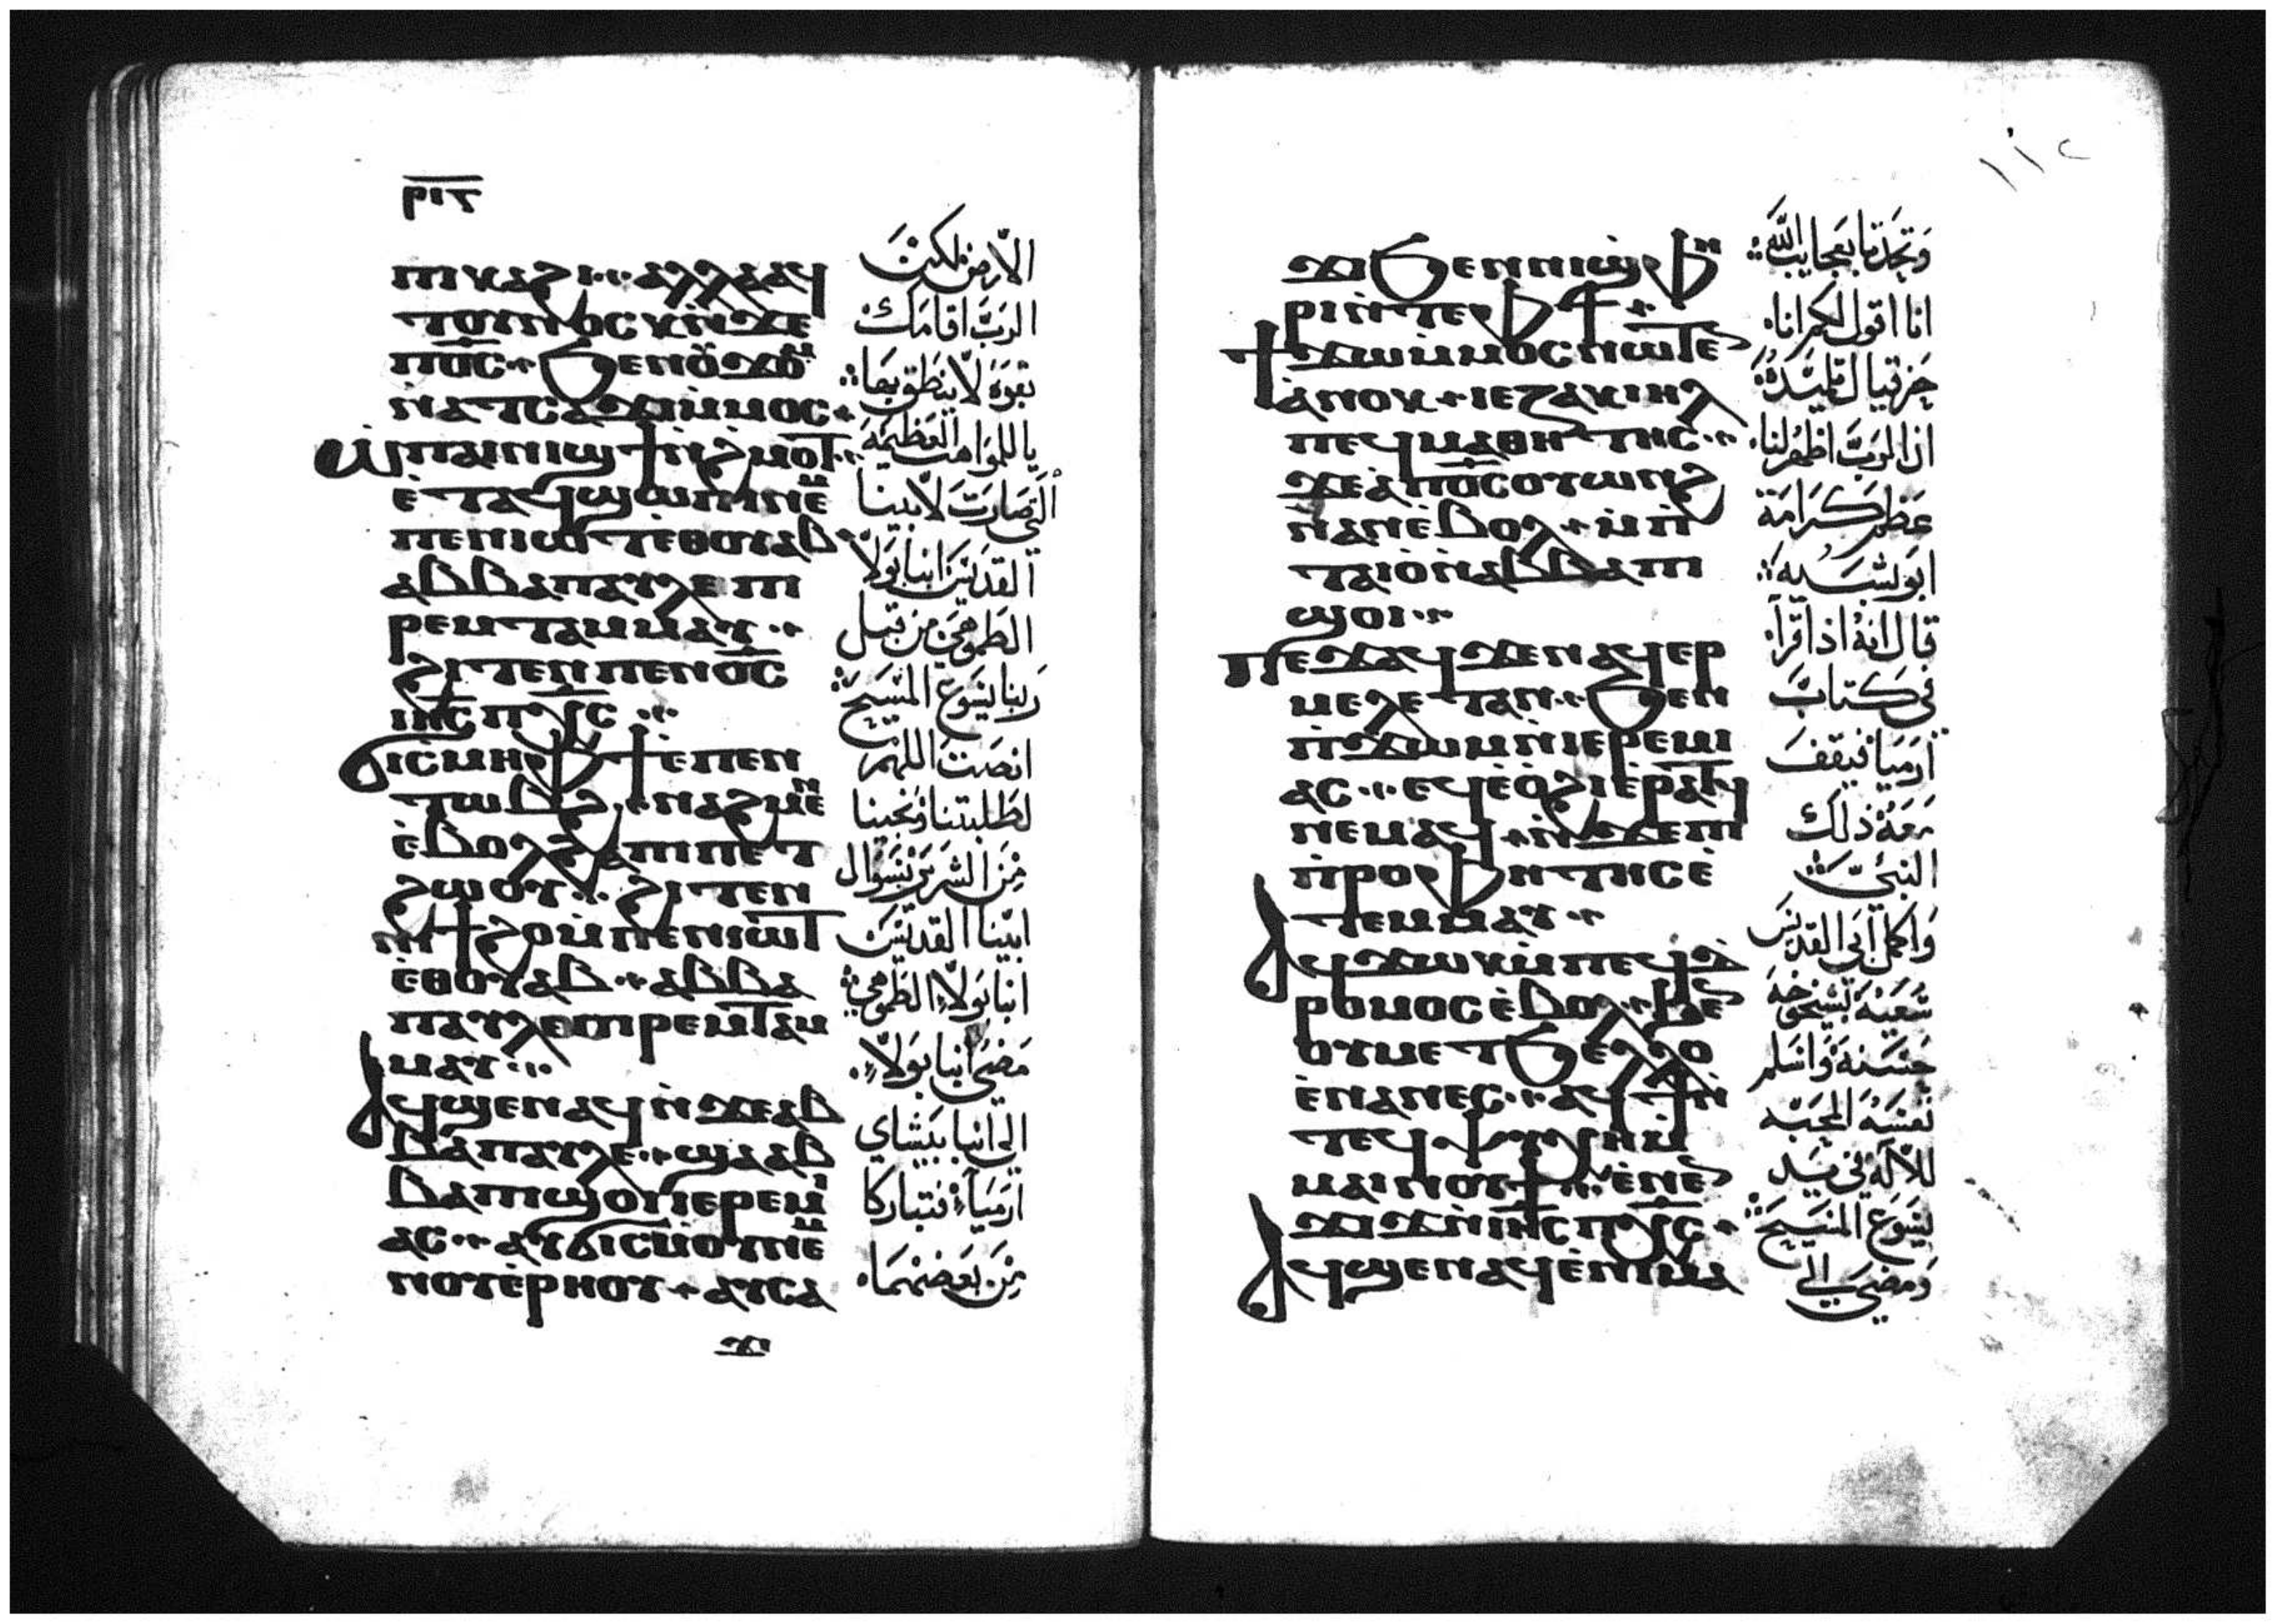 ⲣⲓⲅ
ⲡⲓⲕⲁϩⲓ ⁘ ⲁⲗⲗⲁ ⲁϥ
ⲧⲟⲩⲛⲟⲥⲕ ⲛ̀ϫⲉ
ⲡⲟ̅ⲥ̅ ⁘ ϧⲉⲛ ⲟⲩϫⲟⲙ
ⲛ̀ⲁⲧⲥⲁϫⲓ ⲙ̀ⲙⲟⲥ ⁘
ⲱ̀ ⲡⲁⲓⲛⲓϣϯ ⲛ̀ϩⲙⲟⲧ ⁘
ⲉ̀ⲧⲁϥϣⲱⲡⲓ ⲛⲉⲙ
ⲡⲉⲛⲓⲱⲧ ⲉⲑⲟⲩⲁⲃ
ⲁⲃⲃⲁ ⲡⲁⲩⲗⲉ ⲡⲓ
ⲣⲉⲙⲧⲁⲙⲙⲁⲩ ⁘
ϩⲓⲧⲉⲛ ⲡⲉⲛⲟ̅ⲥ̅
ⲓⲏ̅ⲥ̅ ⲡⲭ̅ⲥ̅ ⁘
ϭⲓⲥⲙⲏ ⲫϯ ⲉ̀ⲡⲉⲛ
ⲧⲱⲃϩ ⁘ ⲛⲁϩⲙⲉⲛ
ⲉ̀ⲃⲟⲗϩⲁ ⲡⲓⲡⲉⲧ
ϩⲱⲟⲩ ⁘ ϩⲓⲧⲉⲛ
ⲛⲓϯϩⲟ ⲙ̀ⲡⲉⲛⲓⲱⲧ
ⲉ̀ⲑⲟⲩⲁⲃ ⁘ ⲁⲃⲃⲁ
ⲡⲁⲩⲗⲉ ⲡⲓⲣⲉⲙⲧⲁⲙ
ⲙⲁⲩ ⁘
ⲁϥϣⲉⲛⲁϥ ⲛ̀ϫⲉ ⲁⲃ
ⲃⲁ ⲡⲁⲩⲗⲉ ⁘ ϣⲁ ⲁⲃ
ⲃⲁ ⲡⲓϣⲟⲓ ⲓⲉⲣⲉⲙⲓ
ⲁⲥ ⁘ ⲁⲩϭⲓⲥⲙⲟⲩ ⲛⲉⲙ
ⲛⲟⲩⲉ̀ⲣⲏⲟⲩ ⁘ ⲁⲩⲥⲁ
ϫⲓ
الارض لكن
الرب اقامك
بقوة لا ينطق بها
يا للموهبة العظيمة
التي صارت لابينا
القديس انبا بولا
الطموهي من قبل
ربنا يسوع المسيح
انصت اللهم
لطلبتنا ونجينا
من الشرير بسوال
ابينا القديس
انبا بولا الطموهي
مضى انبا بولا
الى انبا بيشاي
ارميا فتباركا
من بعضهما
١١٢
ϫⲓ ϧⲉⲛ ⲛⲓϣⲫⲏ
ⲣⲓ ⲛ̀ⲧⲉ ⲫϯ ⁘
ϯϫⲱ ⲙ̀ⲙⲟⲥ ⲛⲱⲧⲉⲛ
ⲁ̀ⲛⲟⲕ ⁘ ⲓⲉⲍⲁⲕⲓⲏⲗ
ⲡⲉϥⲙⲁⲑⲏⲧⲏⲥ ⁘
ϫⲉ ⲁ̀ⲡⲟ̅ⲥ̅ ⲟⲩⲱⲛϩ
ⲛⲁⲛ ⲉ̀ⲃⲟⲗ ⁘ ⲙ̀ⲡ
ⲧⲁⲓⲟ̀ ⲛ̀ⲁⲃⲃⲁ ⲡⲓ
ϣⲟⲓ ⁘
ⲡⲉϫⲁϥ ϫⲉ ⲛⲁϥⲉⲣ
ⲙⲉⲗⲉⲧⲁⲛ ⁘ ϧⲉⲛ
ⲡ̀ϫⲱⲙ ⲛ̀ⲓⲉⲣⲉⲙⲓ
ⲁⲥ ⁘ ⲉϥⲉ̀ⲟ̀ϩⲓ ⲉ̀ⲣⲁⲧϥ
ⲛⲉⲙⲁϥ ⁘ ⲛ̀ϫⲉ ⲡⲓ
ⲡ̀ⲣⲟⲫⲏⲧⲏⲥ ⲉ̀
ⲧⲉⲙⲙⲁⲩ ⁘
ⲁϥϫⲱⲕ ⲙ̀ⲡⲉϥⲇ
ⲣⲟⲙⲟⲥ ⲉ̀ⲃⲟⲗ ⁘ ϧⲉⲛ
ⲟⲩⲙⲉⲧϧⲉⲗⲗⲟ
ⲉ̀ⲛⲁⲛⲉⲥ ⁘ ⲁϥϯ ⲛ̀
ⲧⲉϥⲯⲩⲭⲏ ⲙ̀
ⲙⲁⲓⲛⲟⲩϯ ⁘ ⲉ̀ⲛⲉⲛ
ϫⲓϫ ⲛ̀ⲓⲏ̅ⲥ̅ ⲡⲭ̅ⲥ̅ ⁘
ⲁϥϣⲉⲛⲁϥ ⲉ̀ⲡⲓⲙⲁ
وتحدثا بعجايب الله
انا اقول لكم انا
حزقيال تلميذه
ان الرب اظهر لنا
عظم كرامة
ابو بشيه
قال انه اذا قرا
في كتاب
ارميا فيقف
معه ذلك
النبي
واكمل ابي القديس
سعيه بشيخوخة
حسنة واسلم
نفسه المحبة
للاله في يد
يسوع المسيح
ومضى الى